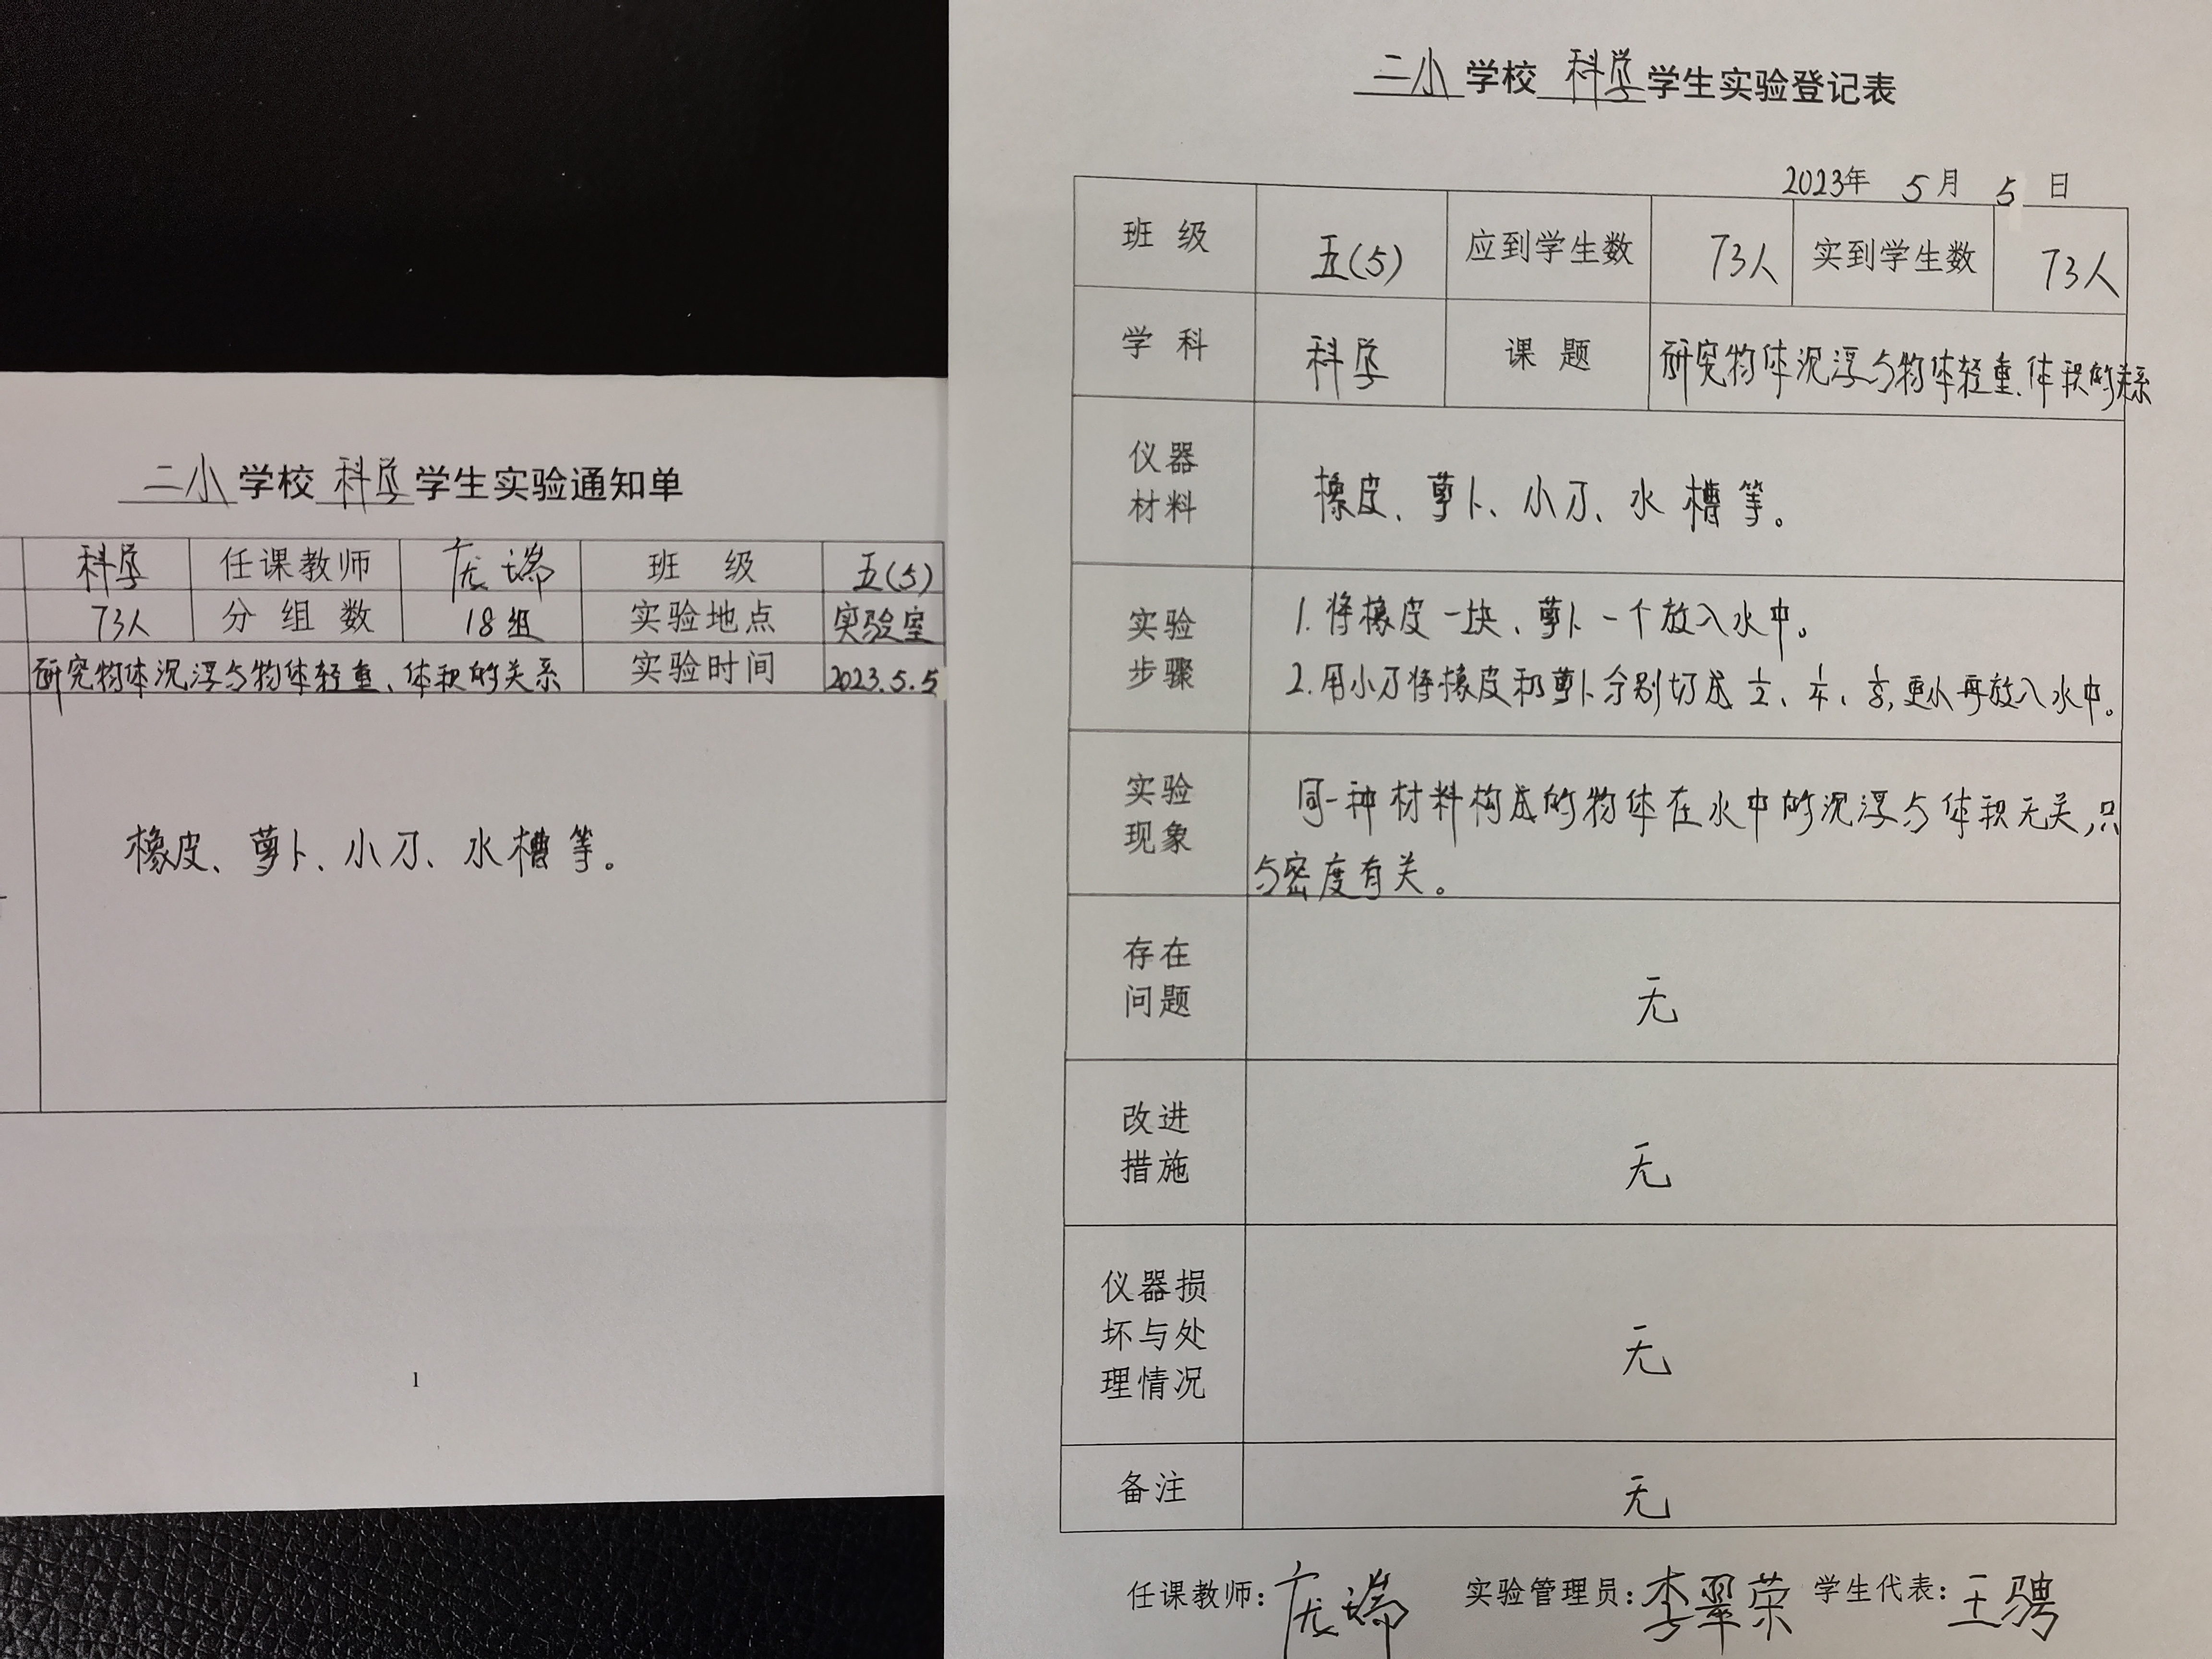 二小学校科学学生实验通知单
科学 任课教师 庞端 班 级 五(5)
73人 分组数 18组 实验地点 实验室
研究物体沉浮与物体轻重、体积的关系 实验时间 2023.5.5
橡皮、萝卜、小刀、水槽等。
1
二小学校科学学生实验登记表
2023年 5月 5日
班 级 五(5) 应到学生数 73人 实到学生数 73人
学 科 科学 课 题 研究物体沉浮与物体轻重、体积的关系
仪器
材料
橡皮、萝卜、小刀、水槽等。
实验
步骤
1.将橡皮一块、萝卜一个放入水中。
2.用小刀将橡皮和萝卜分别切成1/2、1/4、1/8,更小再放入水中。
实验
现象
同一种材料构成的物体在水中的沉浮与体积无关,只
与密度有关。
存在
问题
无
改进
措施
无
仪器损
坏与处
理情况
无
备注 无
任课教师:庞端 实验管理员:李翠荣 学生代表:王骋